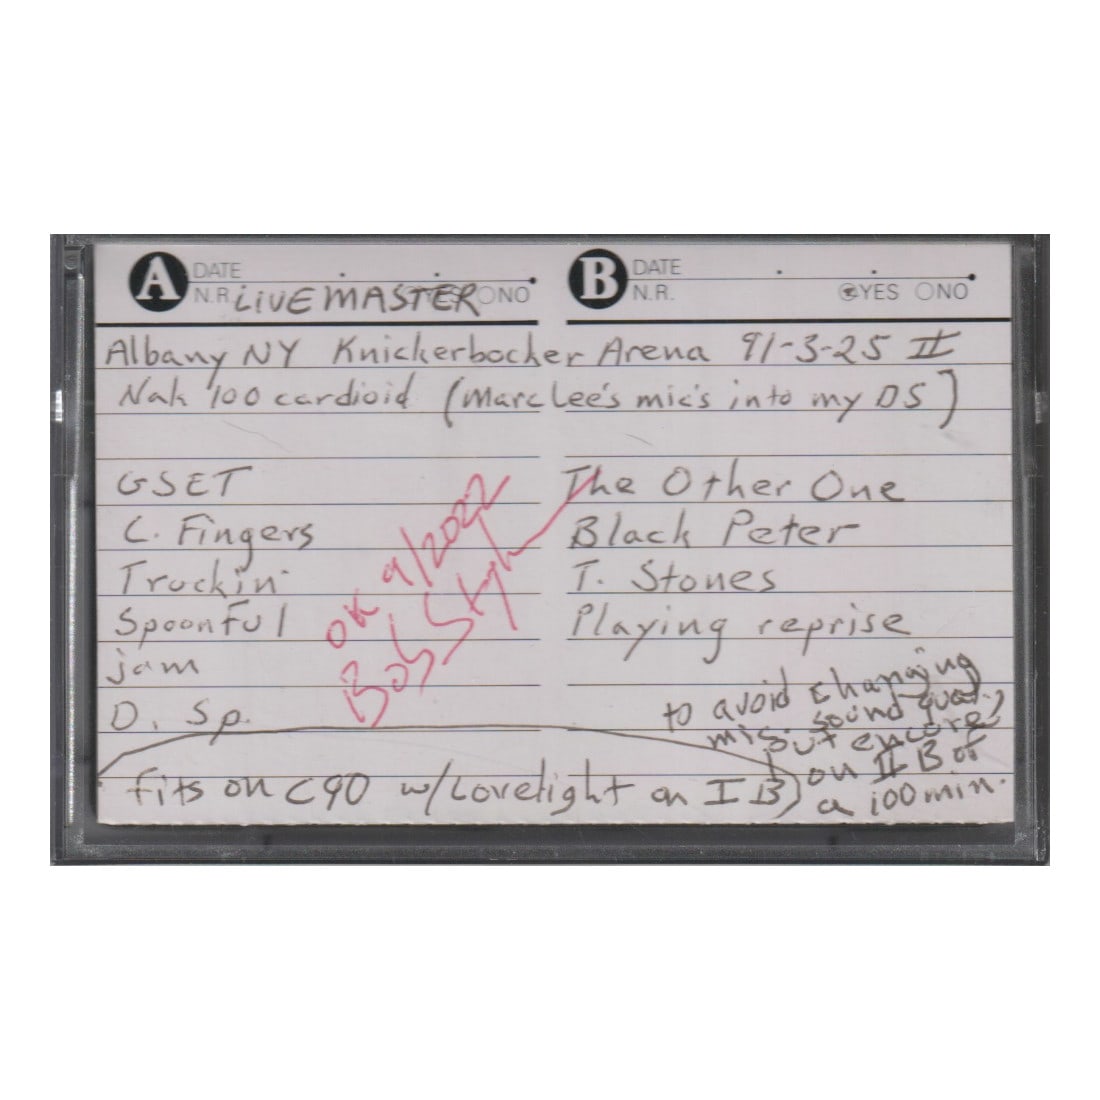 A DATE
N.R. LIVE MASTER YES NO
B DATE
N.R. YES NO
Albany NY Knickerbocker Arena 91-3-25 II
Nak 100 cardioid (Marc Lee's mic's into my D5)
GSET
C. Fingers
Truckin'
Spoonful
jam
D. Sp.
OK 9/2022
Bob
The Other One
Black Peter
T. Stones
Playing reprise
Fits on C90 w/Lovelight on I B)
to avoid changing
mic. sound qual.,
put encore
on II B of
a 100 min.